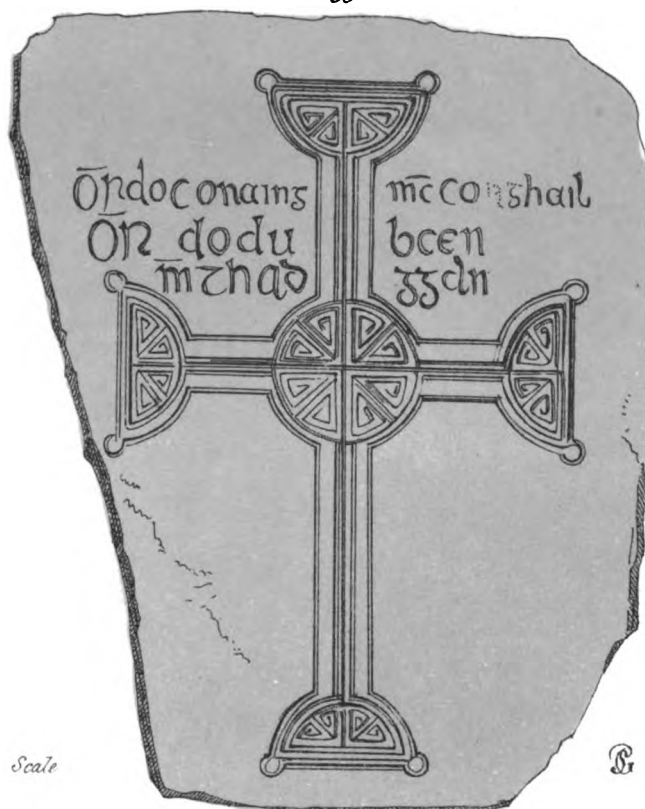 ŌR̄doconaing m̄c conghail
ŌR̄ dodu bcen
m̄thad ggan
Scale